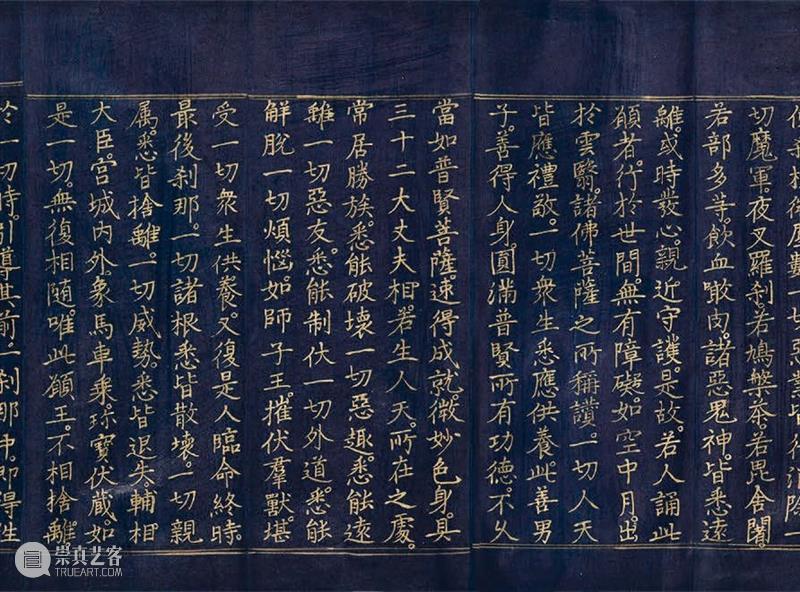 佛刹極微塵數一切惡業皆得消除一
切魔軍。夜叉羅刹。若鳩槃荼。若毘舍闍。
若部多等。飲血噉肉。諸惡鬼神。皆悉遠
離。或時發心。親近守護。是故。若人誦此
願者。行於世間。無有障礙。如空中月。出
於雲翳。諸佛菩薩之所稱讚。一切人天
皆應禮敬。一切衆生悉應供養。此善男
子。善得人身。圓滿普賢所有功德。不久
當如普賢菩薩。速得成就。微妙色身。具
三十二大丈夫相。若生人天。所在之處。
常居勝族。悉能破壞一切惡趣。悉能遠
離一切惡友。悉能制伏一切外道。悉能
解脫一切煩惱。如師子王。摧伏羣獸。堪
受一切衆生供養。又復是人。臨命終時。
最後刹那。一切諸根悉皆散壞。一切親
属。悉皆捨離。一切威勢。悉皆退失。輔相
大臣。宫城內外。象馬車乘。珎寶伏藏。如
是一切。無復相随。唯此願王。不相捨離。
於一切時。引導其前。一刹那中。即得往
崇真艺客
TRUEART.COM